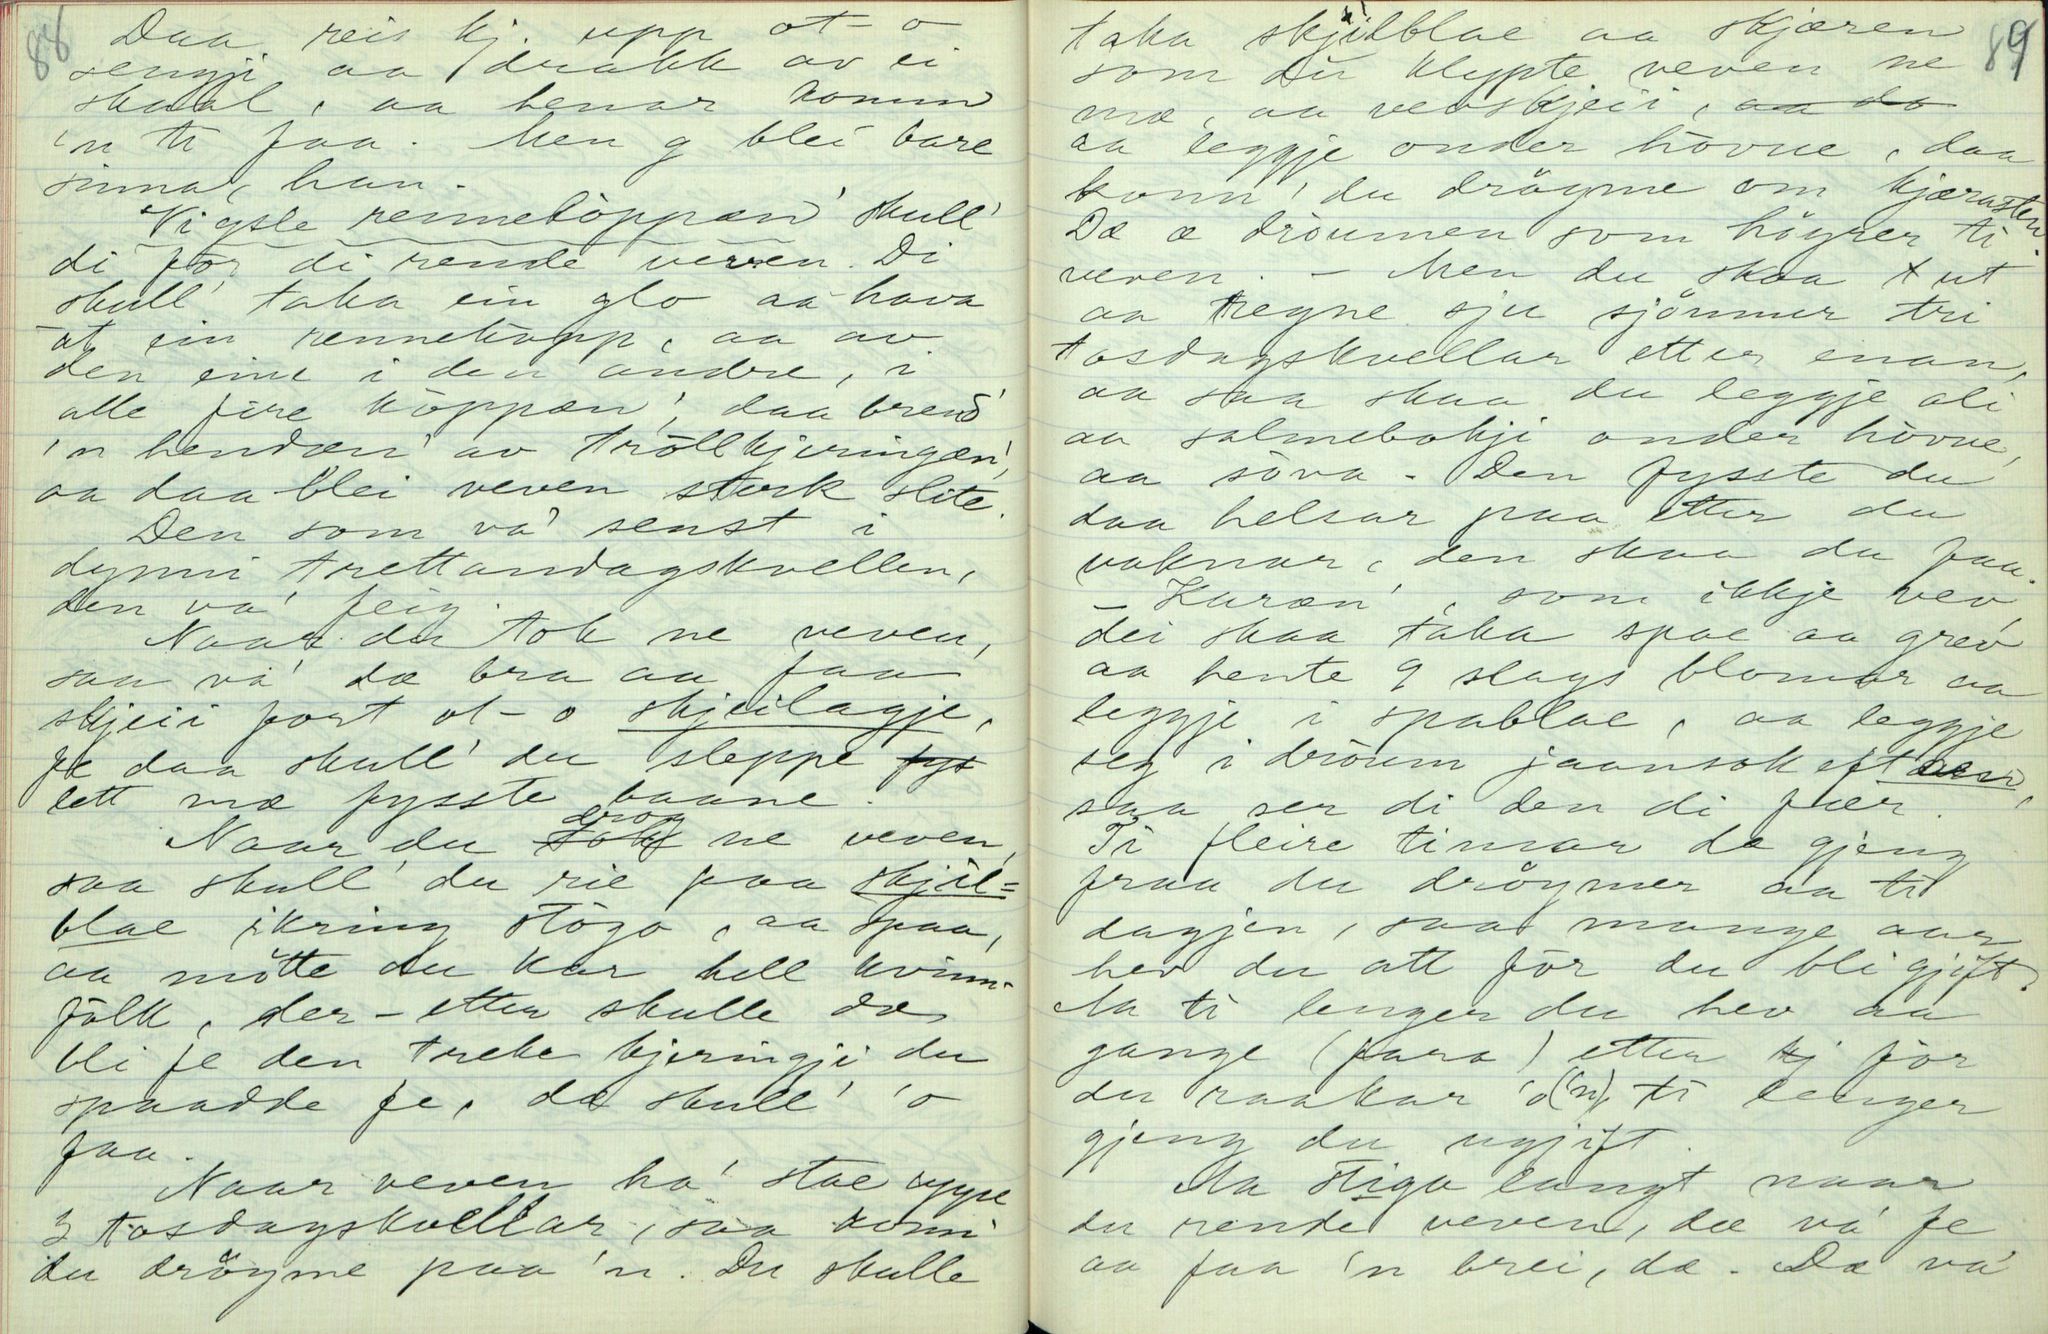 88
Daa reis kj. upp ot-o
sengji aa drakk av ei
skaal, aa henar konn
'n ti faa. Men g blei bare
sinna, han.
Vigsle rennetöppæn' skull'
di för di rende veven. Di
skull' taka ein glo aa hava
at ein rennetöpp, aa av
den eine i den andre, i
alle fire töppæn', daa brend'
'n hendæn' av tröllkjeringæn',
aa daa blei veven sterk slite.
Den som va' senst i
dynni trettandagskvellen,
den va' feig.
Naar du tok ne veven,
saa va' dæ bra aa faa
skjeii fort ot-o skjeilagje,
fe daa skull' du sleppe fys
lett mæ fysste baane.
Naar du tok drog ne veven,
saa skull' du rie paa skjil=
blae ikring stögo, aa spaa,
aa mötte du kar hell kvinn-
fölk, der-etter skulle dæ
bli fe den treke kjeringji du
spaadde fe, dæ skull' 'o
faa.
Naar veven ha' stae uppe
3 tosdagskvellar, saa konn'
du dröyme paa 'n. Du skulle
89
taka skjilblae aa skjæren
som du klypte veven ne
mæ, aa vevskjeii, aa da
aa leggje onder hövue, daa
konn' du dröyme om kjærasten.
Dæ æ dröumen som höyrer ti
veven. - Men du skaa t ut
aa regne sju sjönner tri
tosdagskvellar etter enan,
aa saa skaa du leggje oli
aa salmebokji onder hövue,
aa söva. Den fysste du
daa helsar paa etter du
vaknar, den skaa du faa.
- Karæn', som ikkje vev,
dei skaa taka spae aa grev
aa hente 9 slags blomar aa
leggje i spablae, aa leggje
seg i dröum jaansok eftaen,
saa ser di den di fær.
Ti fleire timar de gjeng
fraa du dröymer aa ti
dagjen, saa mange aar
hev du att för du bli gjift.
Aa ti lenger du hev aa
gange (fara) etter kj för
du raakar 'o ('n), ti lenger
gjeng du ugjift.
Aa stiga langt naar
du rende veven, dæ va' fe
aa faa 'n brei, dæ. Dæ va'